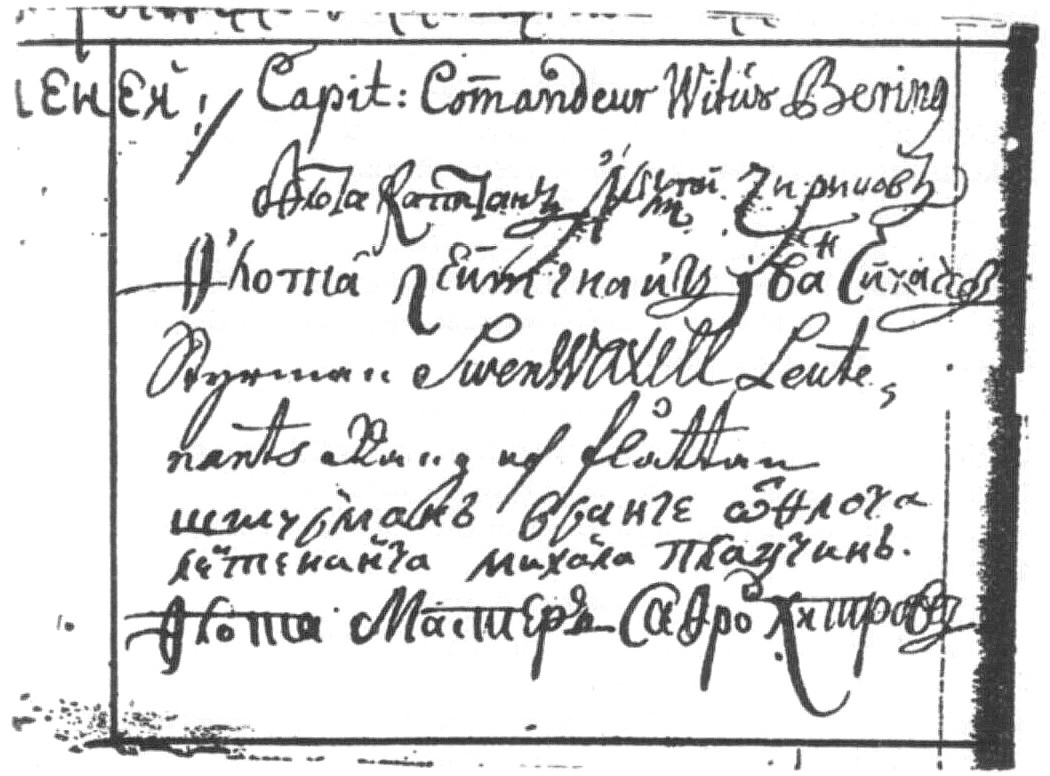 Capit: Com̄andeur Witus Bering
Флота Капитанъ Алексей Чириковъ
Флота Лейтенантъ Иван Чихачевъ
Styrman Swen Waxell Leute,
nants Rang uf flåttan
штурманъ в ранге ѿ флота
лейтенанта михаила плаутинъ.
Флота Мастеръ Сафро Хитровъ